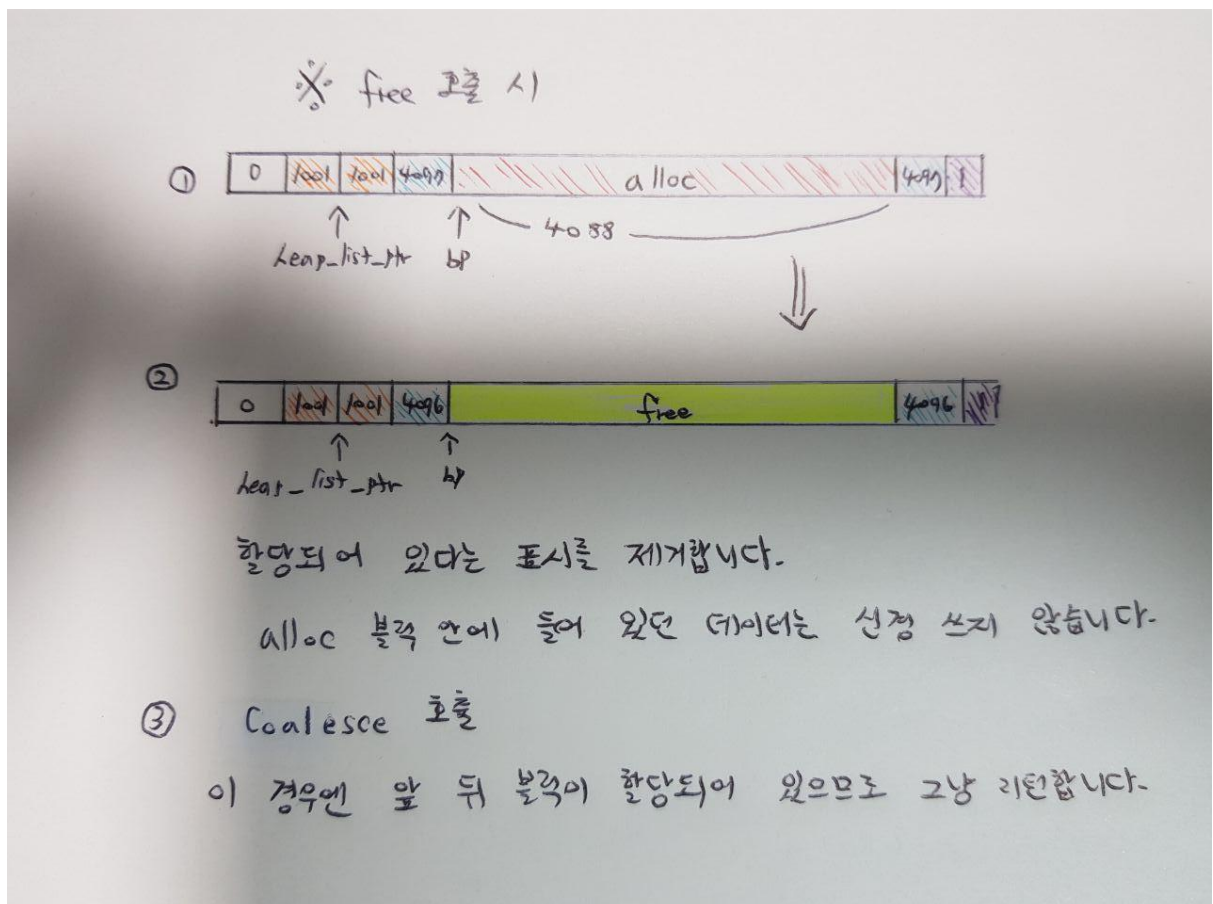 ※ free 호출 시
① 0 1001 1001 4097 alloc 4097 1
4088
heap_list_ptr bp
② 0 1001 1001 4096 free 4096 1
heap_list_ptr bp
할당되어 있다는 표시를 제거합니다.
alloc 블럭 안에 들어 있던 데이터는 신경 쓰지 않습니다.
③ Coalesce 호출
이 경우엔 앞 뒤 블럭이 할당되어 있으므로 그냥 리턴합니다.